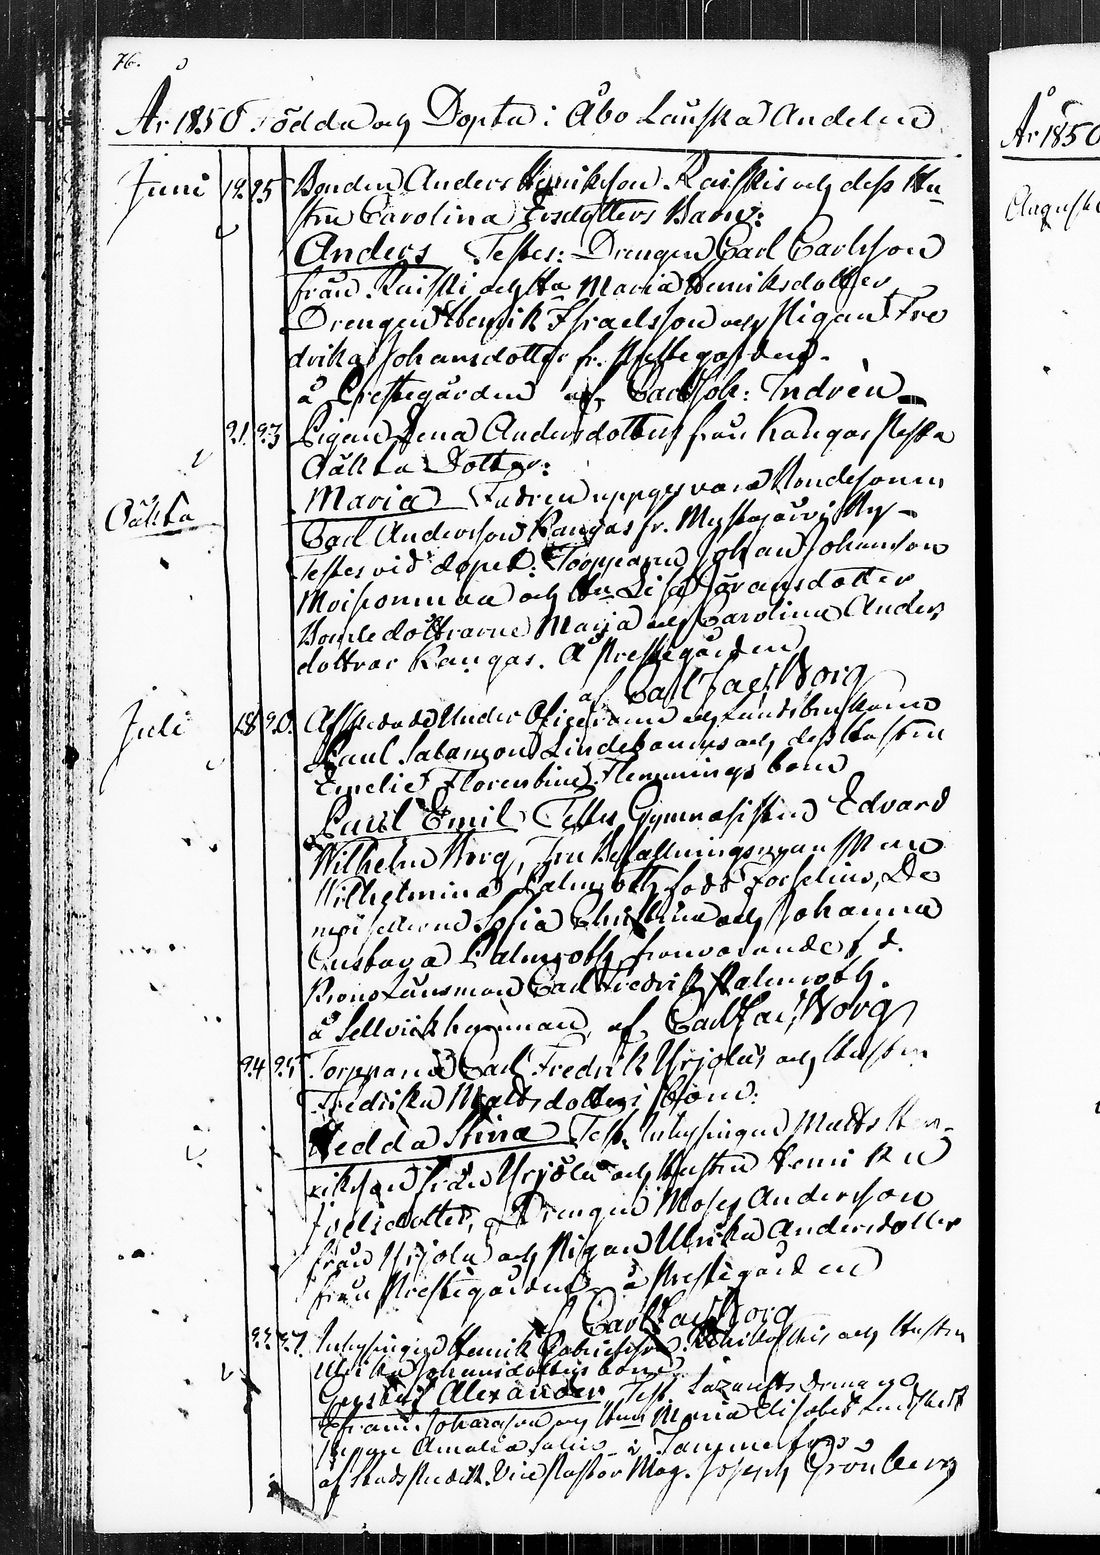 76.
År 1850 Födda och Döpta i Åbo Länska Andelen
År 1850
Juni 19. 25 Bonden Anders Henriksson Raiskis och dess Hu-
stru Carolina Ersdotters Barn:
Augusti
Anders Testes: Drengen Carl Carlsson
från Raiski och Hu Maria Henriksdotter
Drengen Henrik Israelsson och Pigan Fre
drika Johansdotter fr. Prestegården.
å Prestegården af Carl Joh: Indrén
21. 23 Pigan Lena Andersdotters från Kangas
Oäkta Dotter:
Maria Fadren uppges vara Bondesonen
Oäkta
Carl Andersson Kangas fr.
Testes vid dopet: Torpparen Johan Johansson
Moisionmaa och Hu Lisa Göransdotter
Bondedöttrarne Maija och Carolina Anders
dottrar Kangas. å Prestegården
af Carl Jac. Borg
Juli 18 20. Afskedade Under Officeraren och
Paul Salamon Lindebäcks och dess Hustru
Emelie Florentine Flemmings barn
Paul Emil Testes Gymnasisten Edvard
Wilhelm Borg, Fru Befallningsman
Wilhelmina Palmroth född Forselius, De
moisellerne Sofia Christina och Johanna
Gustava Palmroth, frånvarande f. d.
Kronolänsman Carl Fredrik Palmroth.
å af Carl Jac. Borg
24 25 Torpparen Carl Fredrik Yrjölas och Hustrun
Fredrika Mattsdotters Barn:
Hedda Stina Test. Inhysingen Matts Hen-
riksson från Yrjölä och Hustrun Henrika
Joelsdotter, Drengen Moses Andersson
från Yrjola och Pigan Ulrika Andersdotter
från Prestegården å Prestegården
af Carl Jac. Borg
23. 27. Inhysingen Henrik Gabrielsson och Hustrun
Ulrika Johansdotters barn
Gustaf Alexander Test. Lazaretts
Efraim Johansson och Hun Maria Elisabet
Pigan Amalia i Tammerfors
af Vice Pastor Mag. Joseph Grönberg